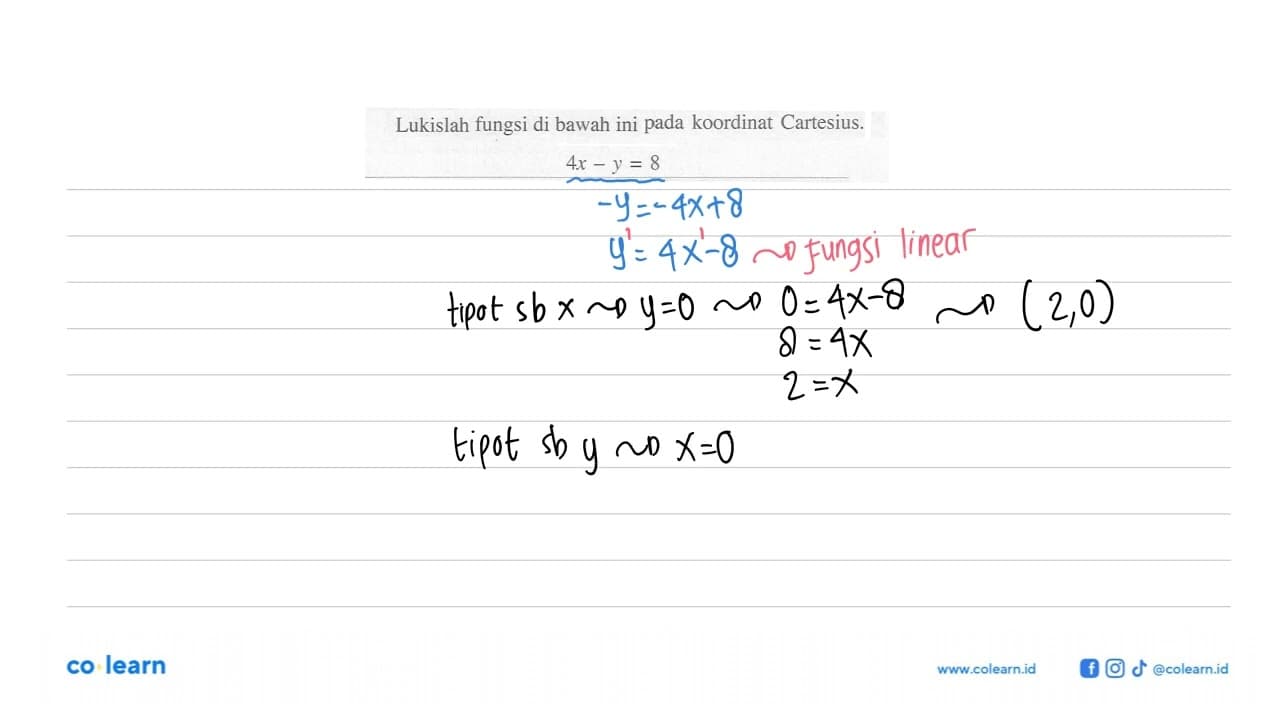 Lukislah fungsi di bawah ini pada koordinat Cartesius.
4x – y = 8
-y=-4x+8
y¹= 4x¹-8 ~> fungsi linear
tipot sb x ~> y=0 ~> 0=4x-8 ~> (2,0)
8=4x
2=x
tipot sb y ~> x=0
co learn
www.colearn.id @colearn.id